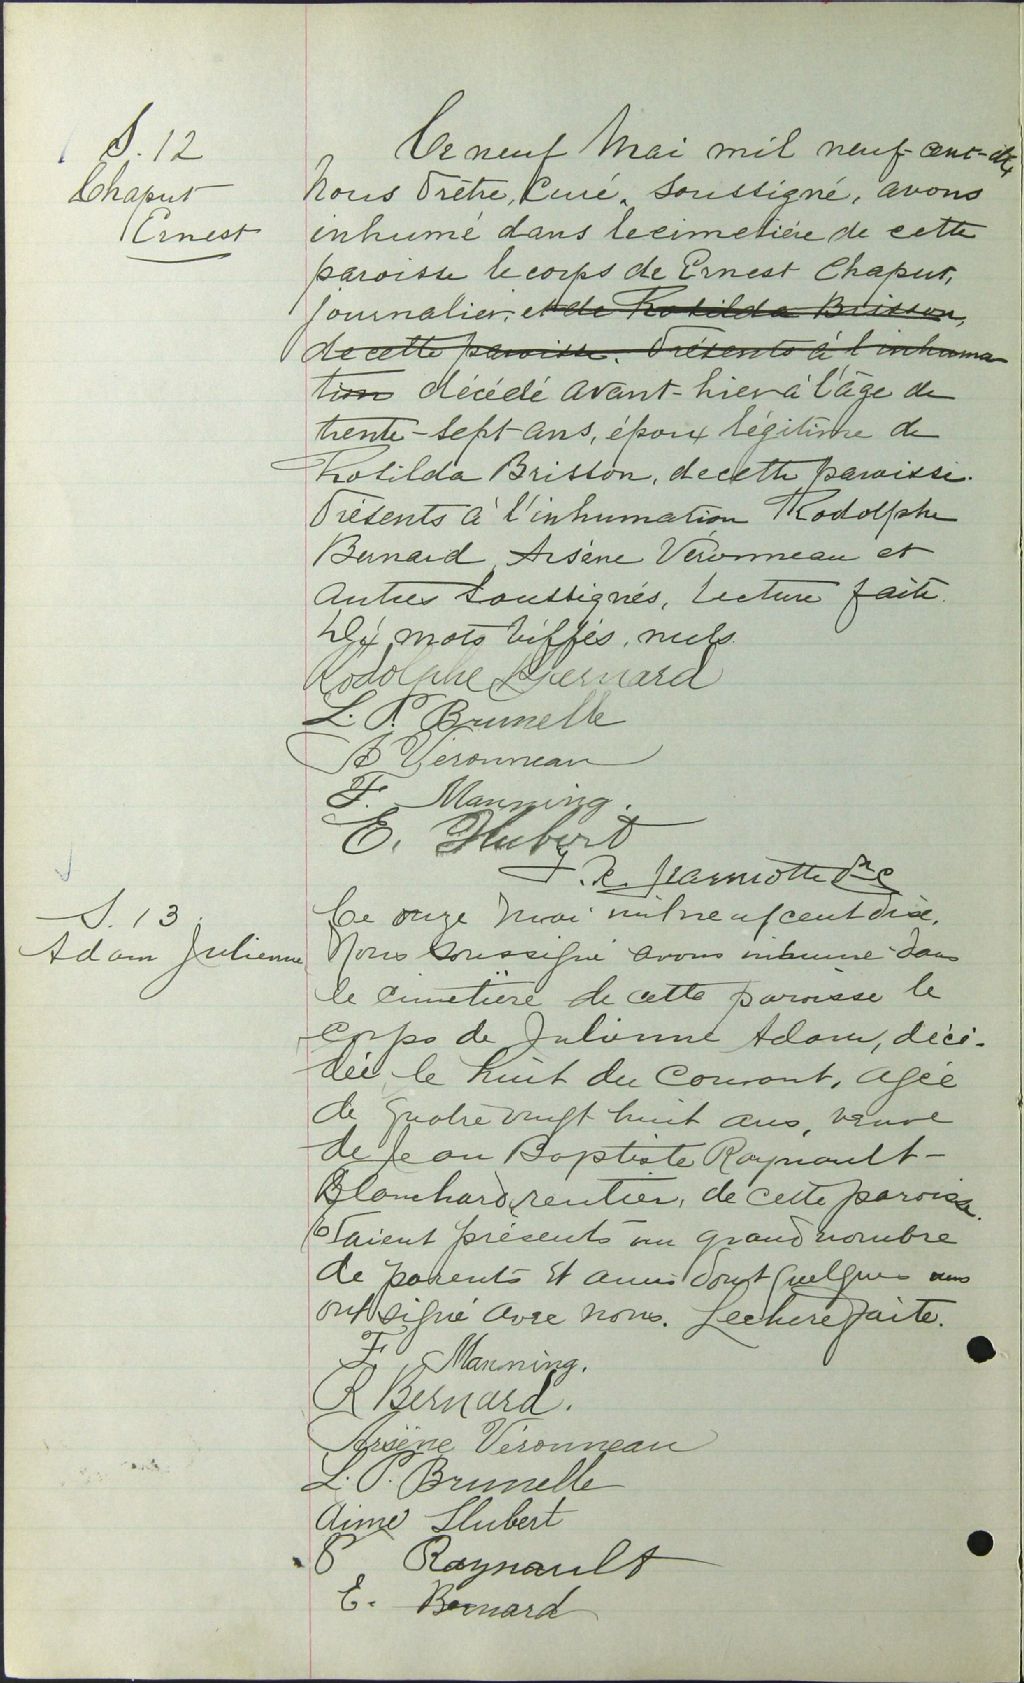 S. 12
Chaput
Ernest
Le neuf Mai mil neuf-cent-dix
Nous Prêtre, Curé, soussigné, avons
inhumé dans le cimetière de cette
paroisse le corps de Ernest Chaput,
journalier, et de Rosilda Brisson,
de cette paroisse. Présents à l'inhuma-
tion décédé avant-hier à l'âge de
trente-sept ans, époux légitime de
Rosilda Brisson, de cette paroisse.
Présents à l'inhumation Rodolphe
Bernard, Arsène Véronneau et
autres soussignés, lecture faite.
Dix mots biffés, nuls.
Rodolphe Bernard
L. P. Brunelle
A Véronneau
F. Manning.
E. Hubert
J. R. Jeannotte Ptre
S. 13
Adam Julienne
Le onze Mai mil neuf cent dix,
Nous soussigné avons inhumé dans
le cimetière de cette paroisse le
corps de Julienne Adam, décé-
dée le huit du courant, agée
de quatre vingt huit ans, veuve
de Jean Baptiste Raynault-
Blanchard, rentier, de cette paroisse.
Etaient présents un grand nombre
de parents et amis dont quelques uns
ont signé avec nous. Lecture faite.
F. Manning.
R Bernard.
Arsène Véronneau
L. P. Brunelle
Aimé Hubert
P Raynault
E. Bernard